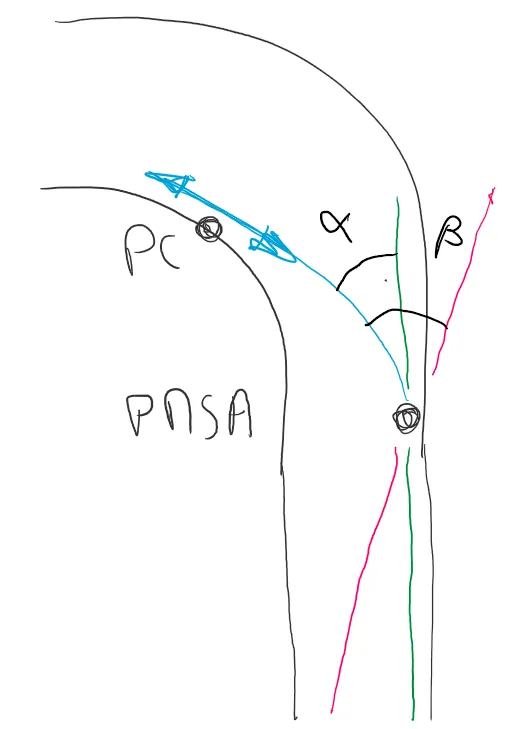 α
β
PC
PMSA